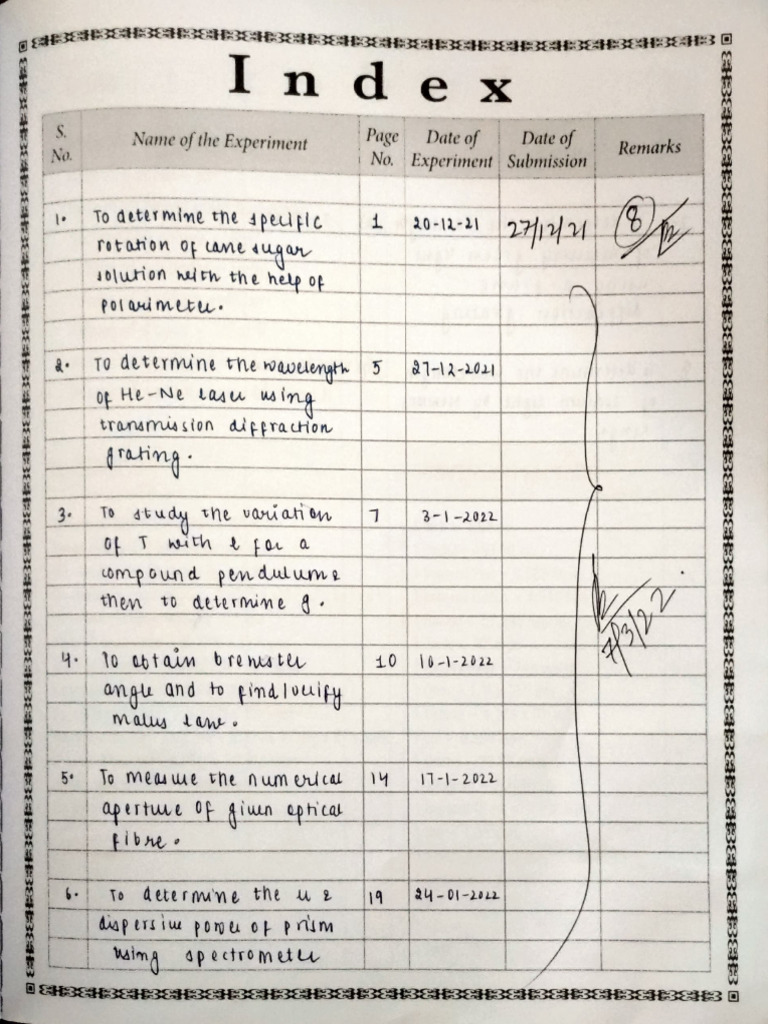 Index
S. No. Name of the Experiment Page No. Date of Experiment Date of Submission Remarks
1. To determine the specific 1 20-12-21 27/12/21 8
rotation of cane sugar
solution with the help of
polarimeter.
2. To determine the wavelength 5 27-12-2021
of He-Ne laser using
transmission diffraction
grating.
3. To study the variation 7 3-1-2022
of T with l for a
compound pendulum &
then to determine g.
7/3/22
4. To obtain brewster 10 10-1-2022
angle and to find/verify
malus law.
5. To measure the numerical 14 17-1-2022
aperture of given optical
fibre.
6. To determine the u & 19 24-01-2022
dispersive power of prism
using spectrometer